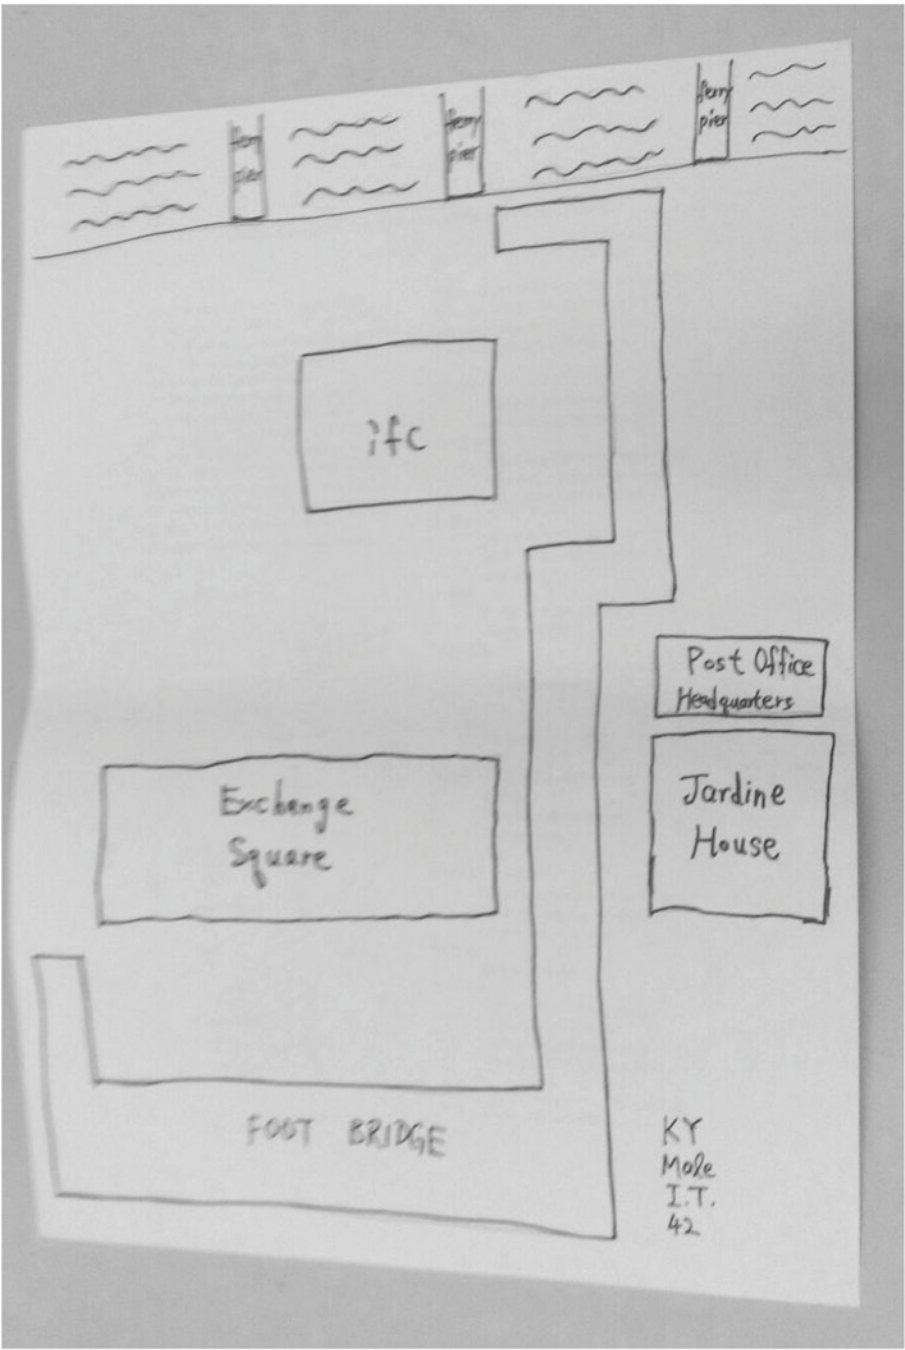 ferry
pier
ferry
pier
ferry
pier
ifc
Post Office
Headquarters
Jardine
House
Exchange
Square
FOOT BRIDGE
KY
Male
I.T.
42